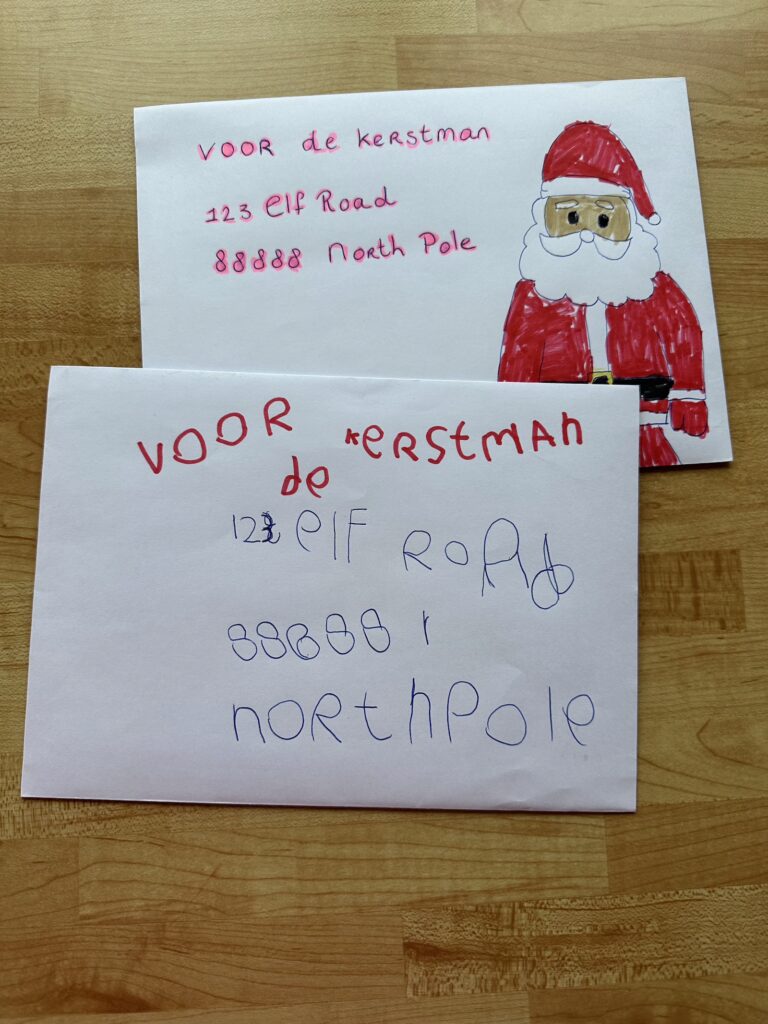 VOOR de kerstman
123 Elf Road
88888 North Pole
VOOR de kerstmAn
123 elf RoAd
88888 
northpole